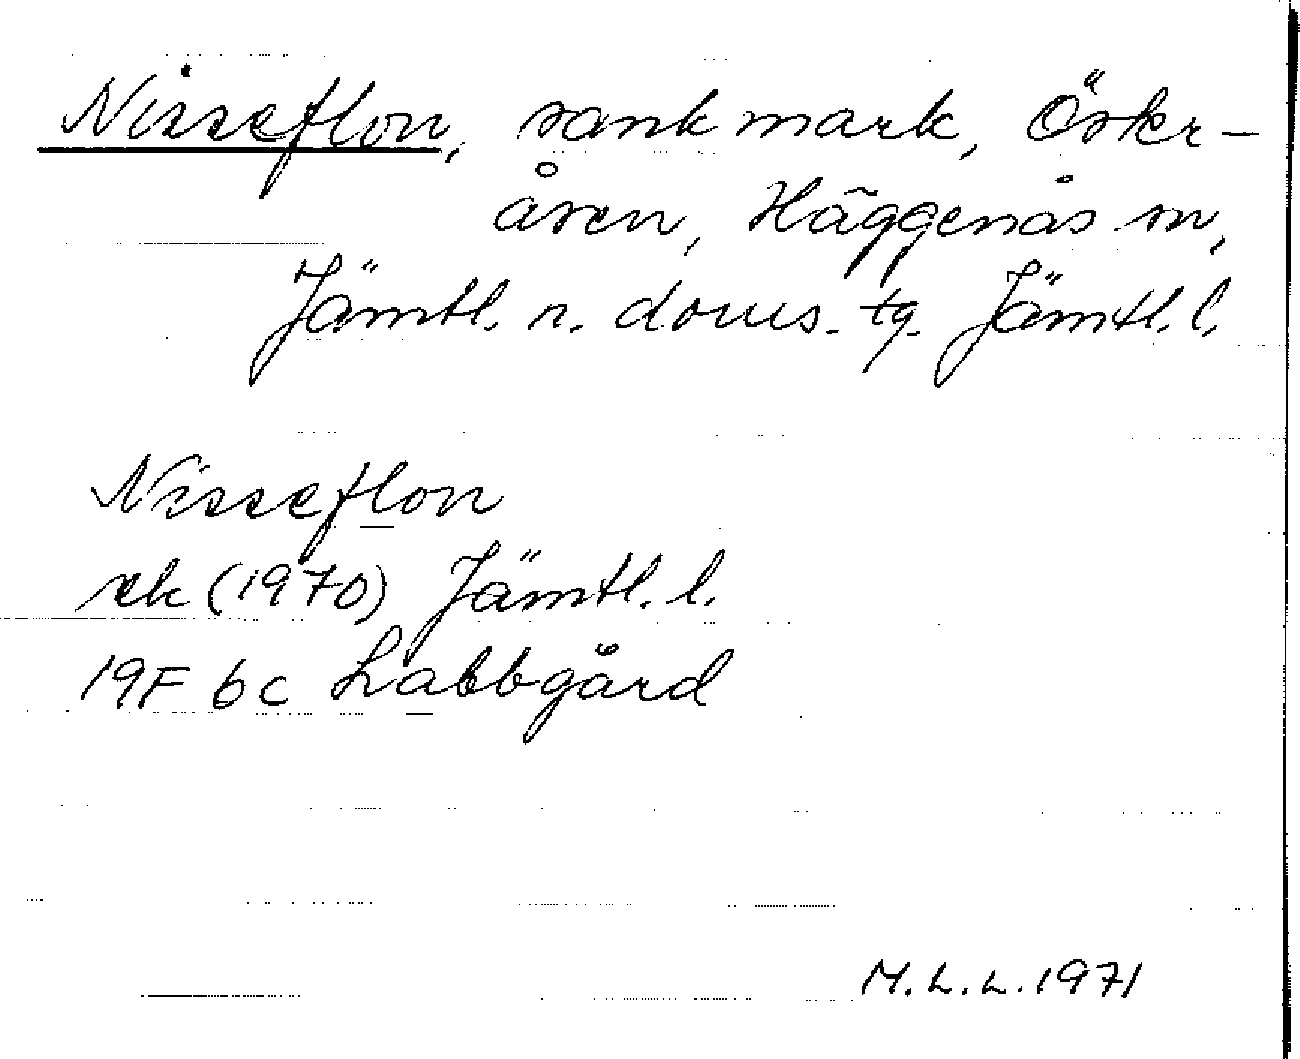 Nisseflon, sankmark, Öster-
åsen, Häggenås sn,
Jämtl. n. doms. tg. Jämtl. l.
Nisseflon
ek (1970) Jämtl. l.
19F 6c Labbgård
M.L.L. 1971